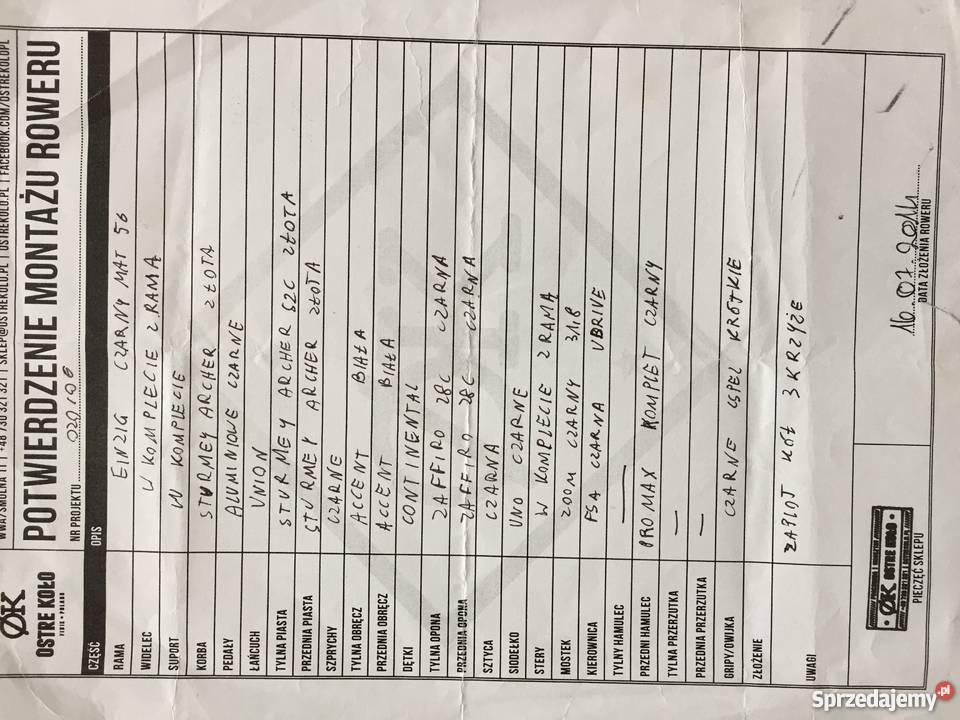 ØK
OSTRE KOŁO
FIXIE • POLAND
WWA/SMOLNA 11 | +48 730 321 321 | SKLEP@OSTREKOLO.PL | OSTREKOLO.PL | FACEBOOK.COM/OSTREKOLOPL
POTWIERDZENIE MONTAŻU ROWERU
NR PROJEKTU
CZĘŚĆ OPIS
RAMA EINZIG CZARNY MAT 56
WIDELEC W KOMPLECIE Z RAMA
SUPORT W KOMPLECIE
KORBA STURMEY ARCHER ZŁOTA
PEDAŁY ALUMINIOWE CZARNE
ŁAŃCUCH UNION
TYLNA PIASTA STURMEY ARCHER S2C ZŁOTA
PRZEDNIA PIASTA STURMEY ARCHER ZŁOTA
SZPRYCHY CZARNE
TYLNA OBRĘCZ ACCENT BIAŁA
PRZEDNIA OBRĘCZ ACCENT BIAŁA
DĘTKI CONTINENTAL
TYLNA OPONA ZAFFIRO 28C CZARNA
PRZEDNIA OPONA ZAFFIRO 28C CZARNA
SZTYCA CZARNA
SIODEŁKO UNO CZARNE
STERY W KOMPLECIE Z RAMA
MOSTEK ZOOM CZARNY 31.8
KIEROWNICA FSA CZARNA VBRIVE
TYLNY HAMULEC —
PRZEDNI HAMULEC PROMAX KOMPLET CZARNY
TYLNA PRZERZUTKA —
PRZEDNIA PRZERZUTKA —
GRIPY/OWIJKA CZARNE CSPEL KRÓTKIE
ZŁOŻENIE
UWAGI ZAPLOT KÓŁ 3 KRZYŻE
ØK OSTRE KOŁO
PIECZĘĆ SKLEPU
16.07.2014
DATA ZŁOŻENIA ROWERU
Sprzedajemy.pl